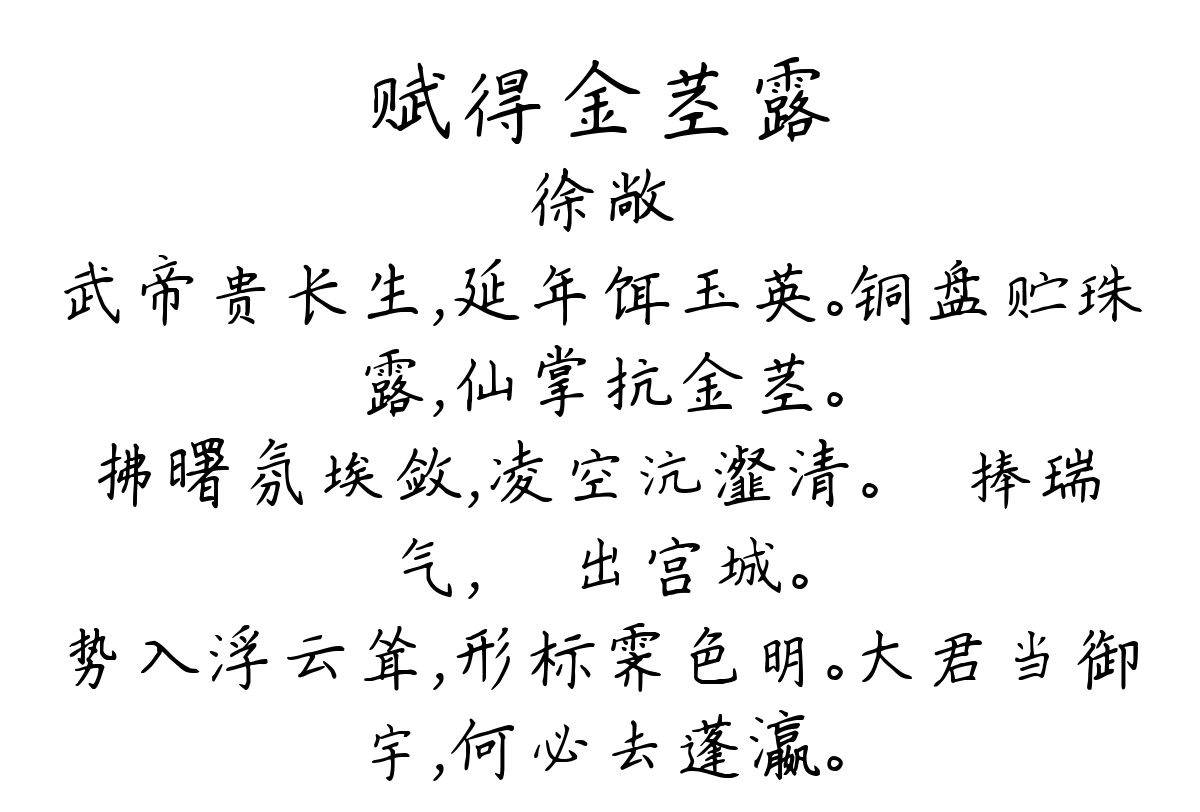 赋得金茎露
徐敞
武帝贵长生,延年饵玉英。铜盘贮珠
露,仙掌抗金茎。
拂曙氛埃敛,凌空沆瀣清。 捧瑞
气, 出宫城。
势入浮云耸,形标霁色明。大君当御
宇,何必去蓬瀛。